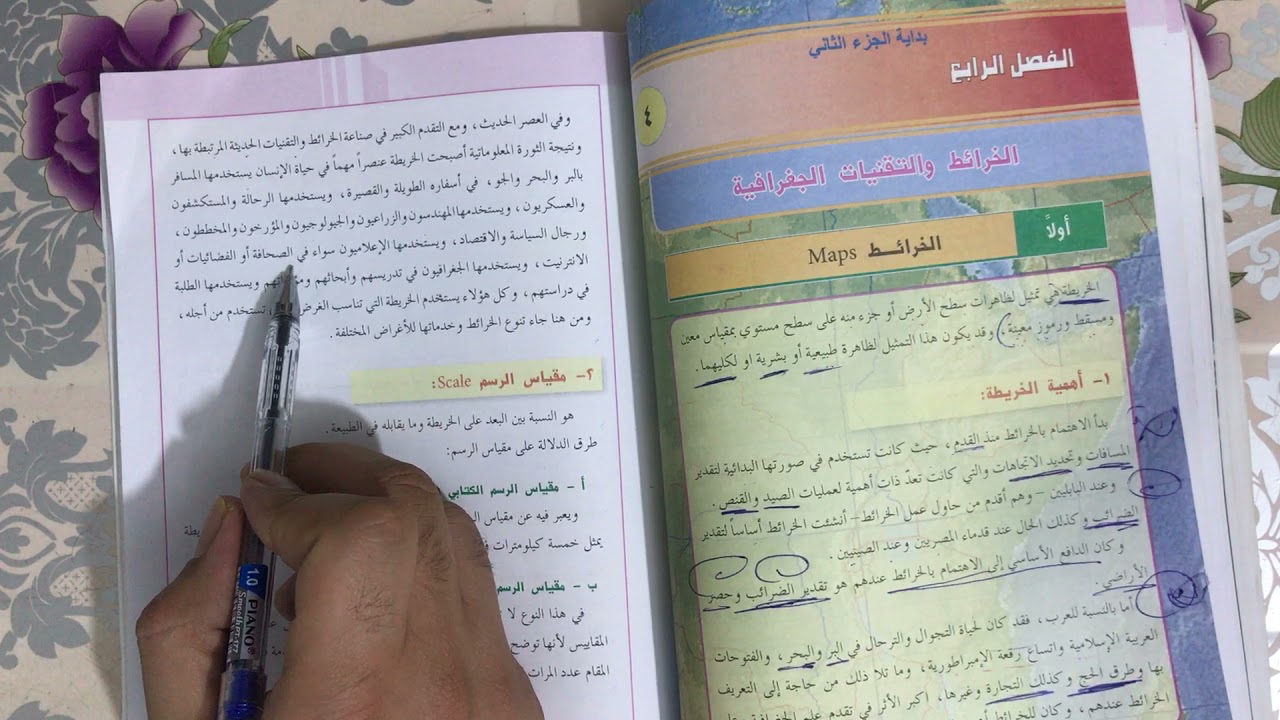 بداية الجزء الثاني
الفصل الرابع
٤
الخرائط والتقنيات الجغرافية
أولاً
الخرائط Maps
الخريطة هي تمثيل لظاهرات سطح الأرض أو جزء منه على سطح مستوي بمقياس معين
ومسقط ورموز معينة، وقد يكون هذا التمثيل لظاهرة طبيعية أو بشرية او لكليهما.
١- أهمية الخريطة:
بدأ الاهتمام بالخرائط منذ القدم، حيث كانت تستخدم في صورتها البدائية لتقدير
المسافات وتحديد الاتجاهات والتي كانت تعدّ ذات أهمية لعمليات الصيد والقنص.
وعند البابليين - وهم أقدم من حاول عمل الخرائط - أنشئت الخرائط أساساً لتقدير
الضرائب وكذلك الحال عند قدماء المصريين وعند الصينيين.
وكان الدافع الأساسي إلى الاهتمام بالخرائط عندهم هو تقدير الضرائب وحصر
الأراضي.
أما بالنسبة للعرب، فقد كان لحياة التجوال والترحال في البر والبحر، والفتوحات
العربية الإسلامية واتساع رقعة الإمبراطورية، وما تلا ذلك من حاجة إلى التعريف
بها وطرق الحج وكذلك التجارة وغيرها، اكبر الأثر في تقدم علم
الخرائط عندهم، وكان للخرائط
وفي العصر الحديث، ومع التقدم الكبير في صناعة الخرائط والتقنيات الحديثة المرتبطة بها،
ونتيجة الثورة المعلوماتية أصبحت الخريطة عنصراً مهماً في حياة الإنسان يستخدمها المسافر
بالبر والبحر والجو، في أسفاره الطويلة والقصيرة، ويستخدمها الرحالة والمستكشفون
والعسكريون، ويستخدمها المهندسون والزراعيون والجيولوجيون والمؤرخون والمخططون،
ورجال السياسة والاقتصاد، ويستخدمها الإعلاميون سواء في الصحافة أو الفضائيات أو
الانترنيت، ويستخدمها الجغرافيون في تدريسهم وأبحاثهم ويستخدمها الطلبة
في دراستهم، وكل هؤلاء يستخدم الخريطة التي تناسب الغرض تستخدم من أجله،
ومن هنا جاء تنوع الخرائط وخدماتها للأغراض المختلفة.
٢- مقياس الرسم Scale:
هو النسبة بين البعد على الخريطة وما يقابله في الطبيعة.
طرق الدلالة على مقياس الرسم:
أ - مقياس الرسم الكتابي
ويعبر فيه عن مقياس
يمثل خمسة كيلومترات
ب - مقياس الرسم
في هذا النوع لا
المقاييس لأنها توضح
المقام عدد المرات
1.0 PIANO